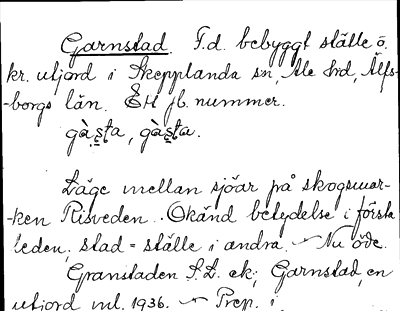 Garnstad. F.d. bebyggt ställe ö.
kr. utjord i Skepplanda sn, Ale hd, Älfs-
-borgs län. EH jb. nummer.
gàsta, gàsta.
Läge mellan sjöar på skogsmar-
-ken Risveden. Okänd betydelse i första
leden, stad = ställe i andra. – Nu öde.
Granstaden S.L. ek; Garnstad, en
utjord ml. 1936. – Prep. i